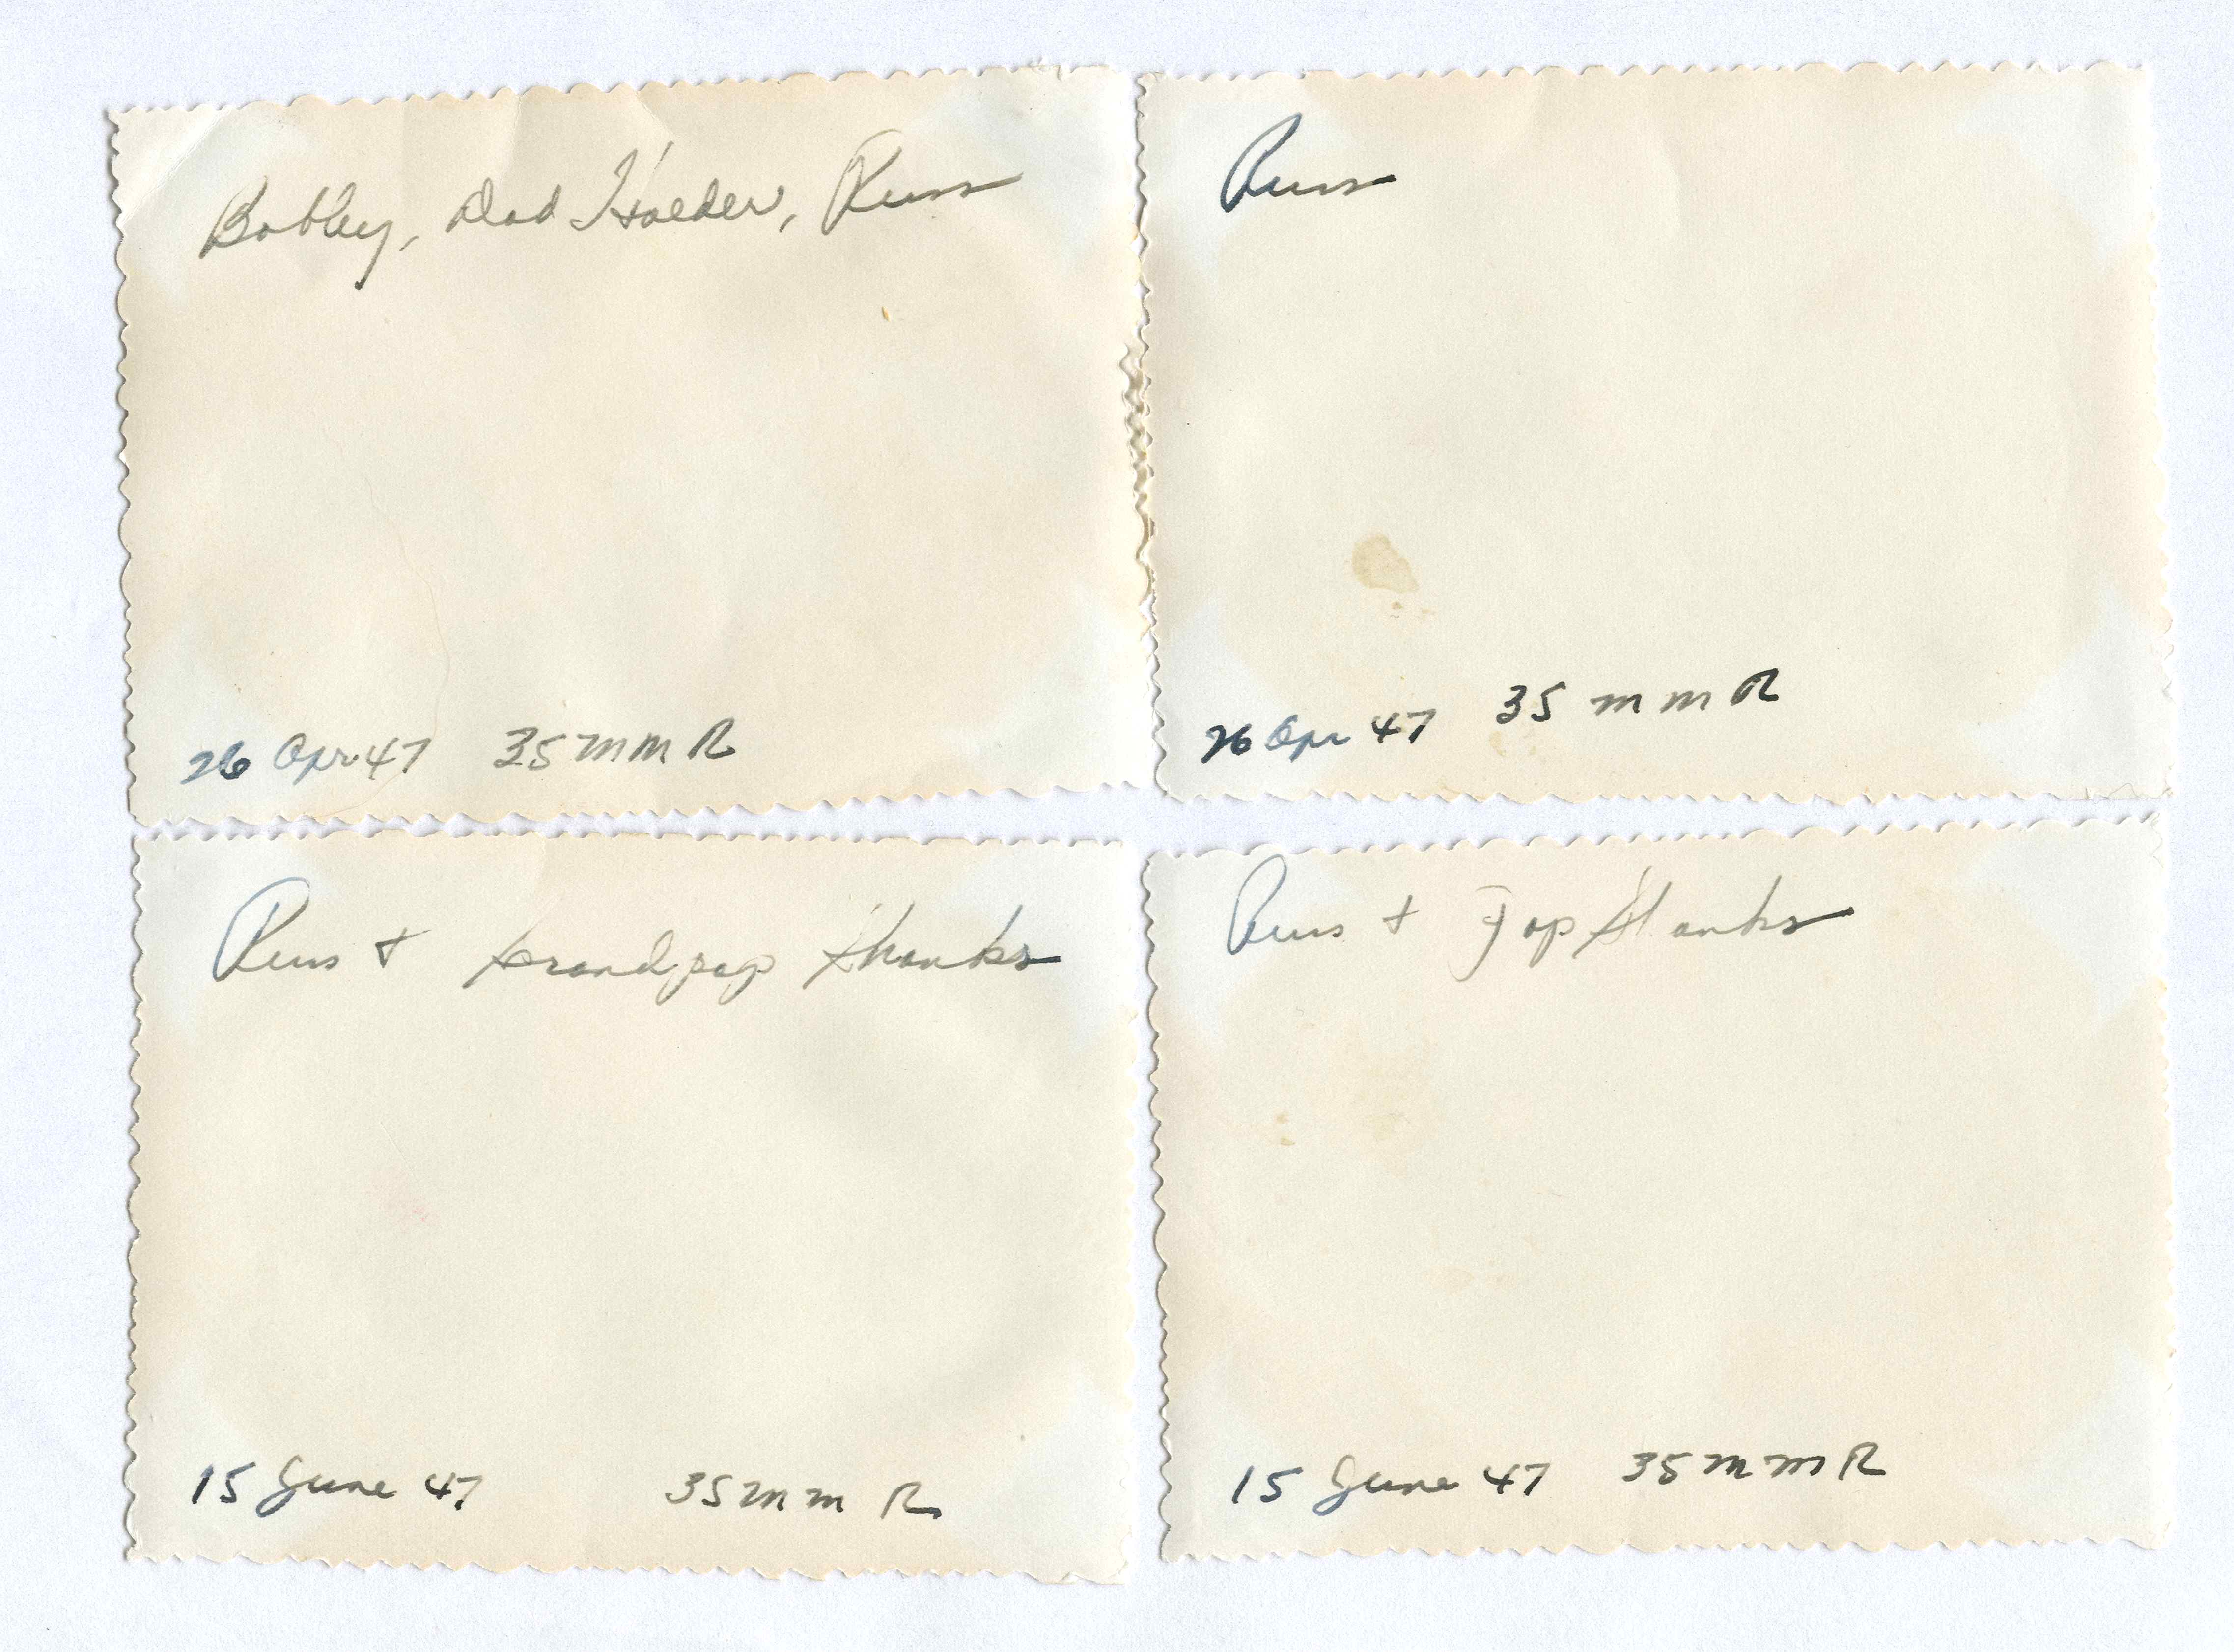 Bobby, Dad Holder, Russ
26 Apr 47 35 mm R
Russ
26 Apr 47 35 mm R
Russ + Grandpap Shanks
15 June 47 35 mm R
Russ + Pop Shanks
15 June 47 35 mm R